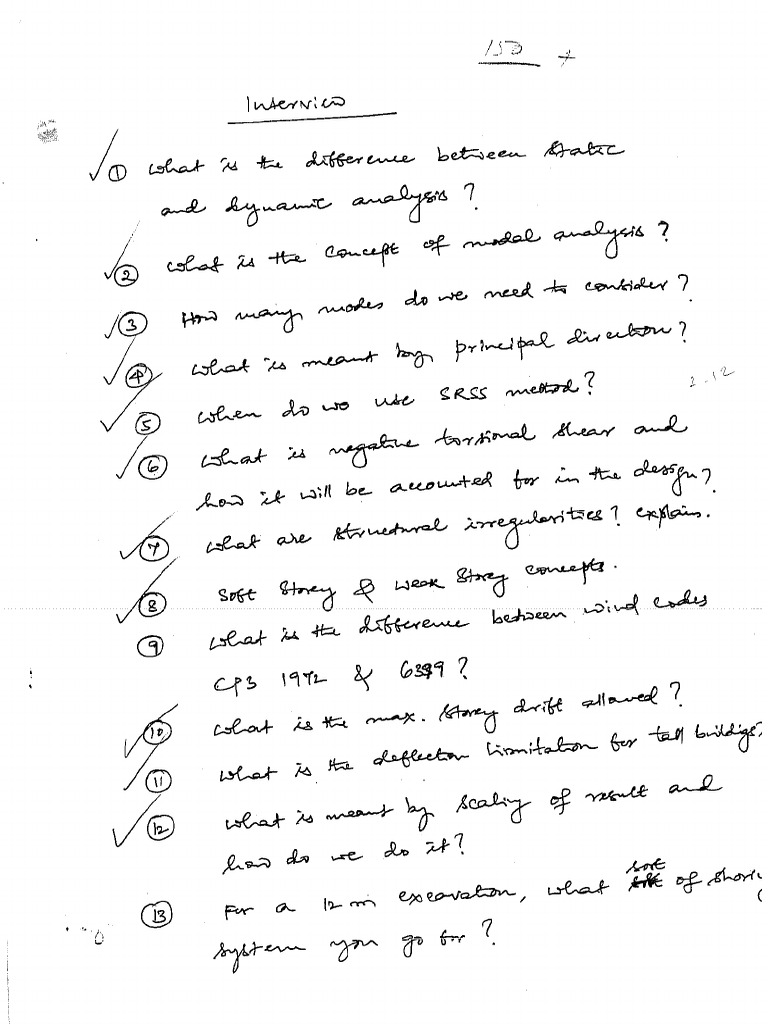 150 +
Interview
① What is the difference between static
and dynamic analysis?
② What is the concept of modal analysis?
③ How many modes do we need to consider?
④ What is meant by principal direction?
⑤ When do we use SRSS method?
2.12
⑥ What is negative torsional shear and
how it will be accounted for in the design?
⑦ What are structural irregularities? explain.
⑧ Soft Storey & weak Storey concepts.
⑨ What is the difference between wind codes
CP3 1972 & 6399?
⑩ What is the max. Storey drift allowed?
⑪ What is the deflection limitation for tall buildigs?
⑫ What is meant by scaling of result and
how do we do it?
⑬ For a 12 m excavation, what sort of shorin
system you go for?